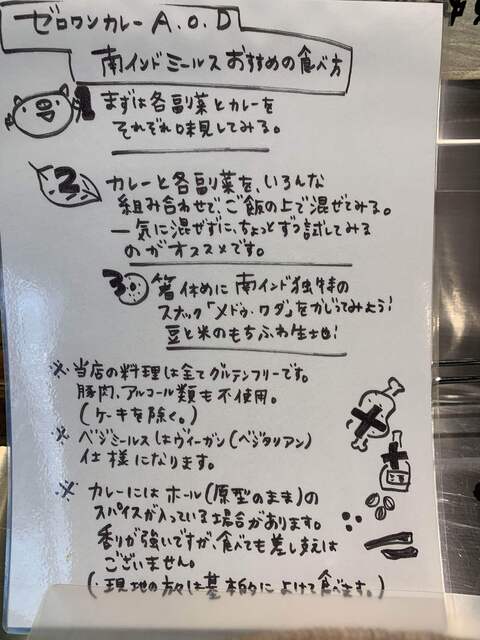 ゼロワンカレー A.O.D
南インドミールス おすすめの食べ方
1 まずは各副菜とカレーを
それぞれ味見してみる。
2 カレーと各副菜を、いろんな
組み合わせで、ご飯の上で混ぜてみる。
一気に混ぜずに、ちょっとずつ試してみる
のがオススメです。
3 箸休めに南インド独特の
スナック「メドゥ・ワダ」をかじってみよう!
豆と米のもちふわ生地!
※ 当店の料理は全てグルテンフリーです。
豚肉、アルコール類も不使用。
(ケーキを除く。)
※ ベジミールスはヴィーガン(ベジタリアン)
仕様になります。
※ カレーにはホール(原型のまま)の
スパイスが入っている場合があります。
香りが強いですが、食べても差し支えは
ございません。
(・現地の方は基本的によけて食べます。)